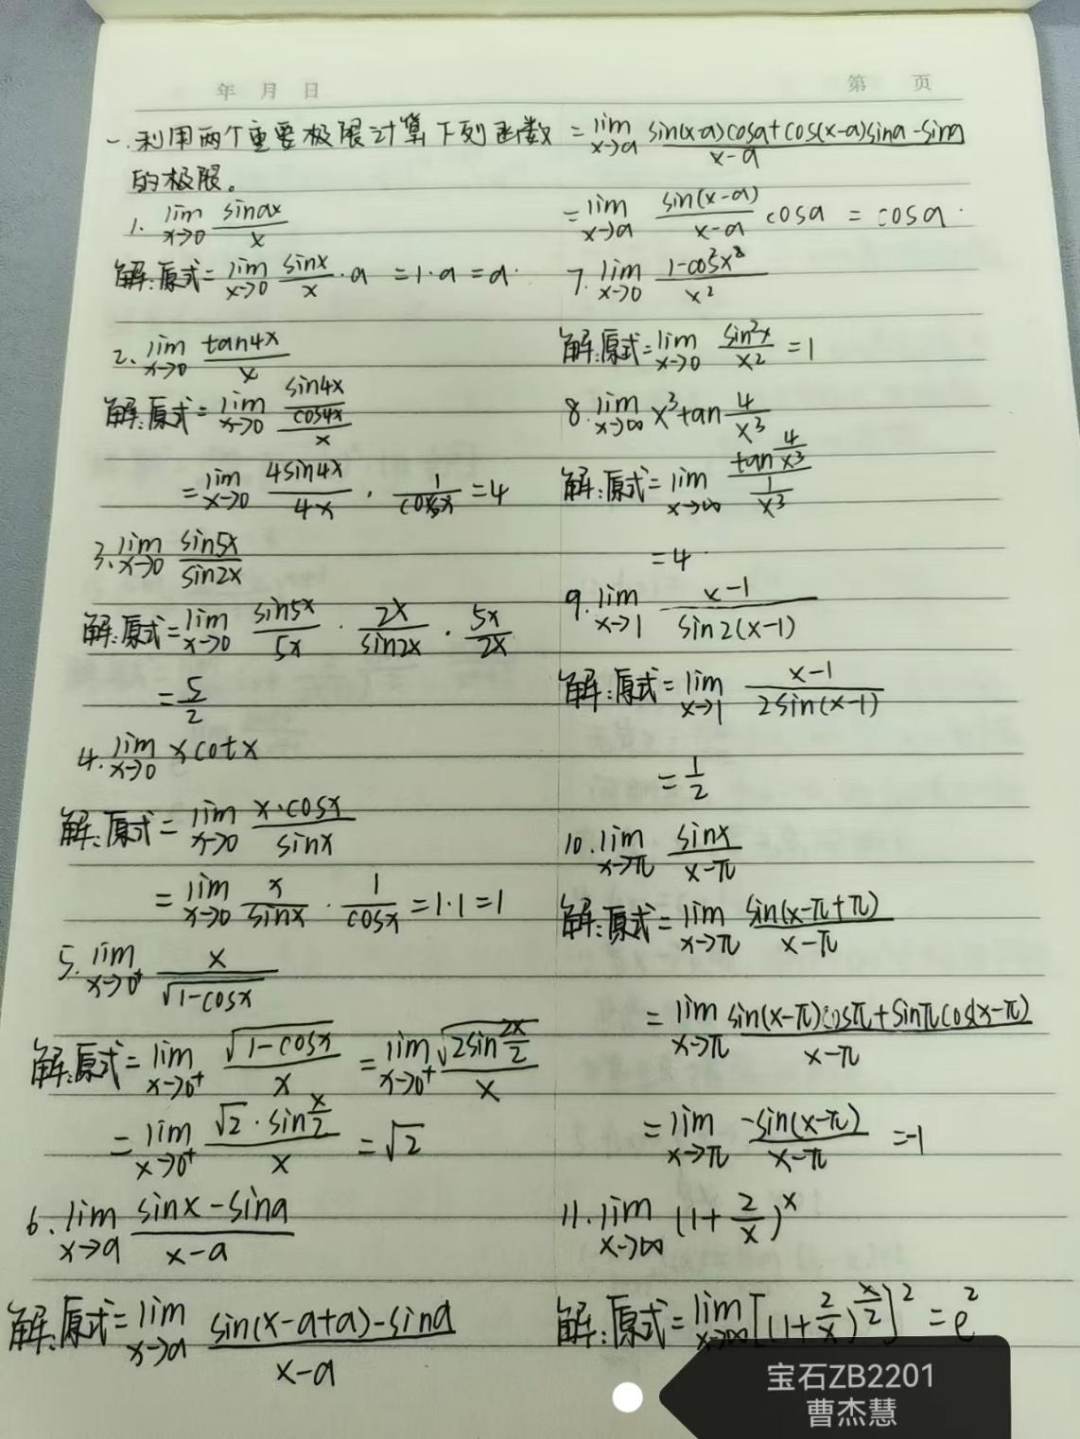 年 月 日
第 页
一.利用两个重要极限计算下列函数
的极限。
1. lim x→0 sinax/x
解:原式=lim x→0 sinx/x · a =1·a=a.
2. lim x→0 tan4x/x
解:原式=lim x→0 (sin4x/cos4x)/x
=lim x→0 4sin4x/4x · 1/cos4x =4
3. lim x→0 sin5x/sin2x
解:原式=lim x→0 sin5x/5x · 2x/sin2x · 5x/2x
=5/2
4. lim x→0 xcotx
解:原式=lim x→0 x·cosx/sinx
=lim x→0 x/sinx · 1/cosx =1·1=1
5. lim x→0⁺ x/√(1-cosx)
解:原式=lim x→0⁺ √(1-cosx)/x =lim x→0⁺ √(2sin²x/2)/x
=lim x→0⁺ √2·sin(x/2)/x =√2
6. lim x→a (sinx-sina)/(x-a)
解:原式=lim x→a (sin(x-a+a)-sina)/(x-a)
=lim x→a (sin(x-a)cosa+cos(x-a)sina-sina)/(x-a)
=lim x→a sin(x-a)/(x-a) cosa = cosa.
7. lim x→0 (1-cos²x)/x²
解:原式=lim x→0 sin²x/x² =1
8. lim x→∞ x³tan 4/x³
解:原式=lim x→∞ (tan 4/x³)/(1/x³)
=4.
9. lim x→1 (x-1)/sin2(x-1)
解:原式=lim x→1 (x-1)/2sin(x-1)
=1/2
10. lim x→π sinx/(x-π)
解:原式=lim x→π sin(x-π+π)/(x-π)
=lim x→π (sin(x-π)cosπ+sinπcos(x-π))/(x-π)
=lim x→π -sin(x-π)/(x-π) =-1
11. lim x→∞ (1+2/x)^x
解:原式=lim x→∞ [(1+2/x)^(x/2)]² =e²
宝石ZB2201
曹杰慧